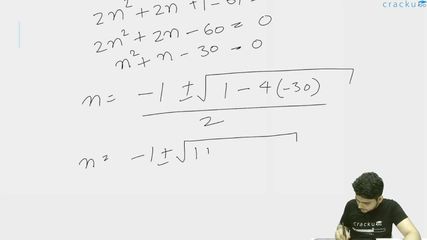 cracku
2n² + 2n + 1 - 61 =
2n² + 2n - 60 = 0
n² + n - 30 = 0
n = -1 ± √1 - 4(-30) / 2
n = -1 ± √11
cracku